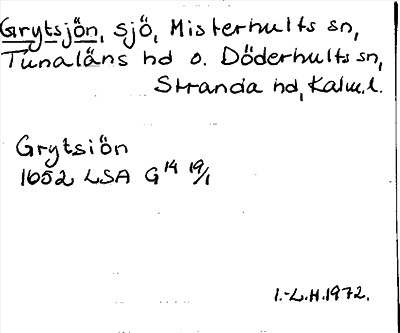 Grytsjön, sjö, Misterhults sn,
Tunaläns hd o. Döderhults sn,
Stranda hd, Kalm.l.
Grytsiön
1652 LSA G14 19/1
I.-L.H.1972.